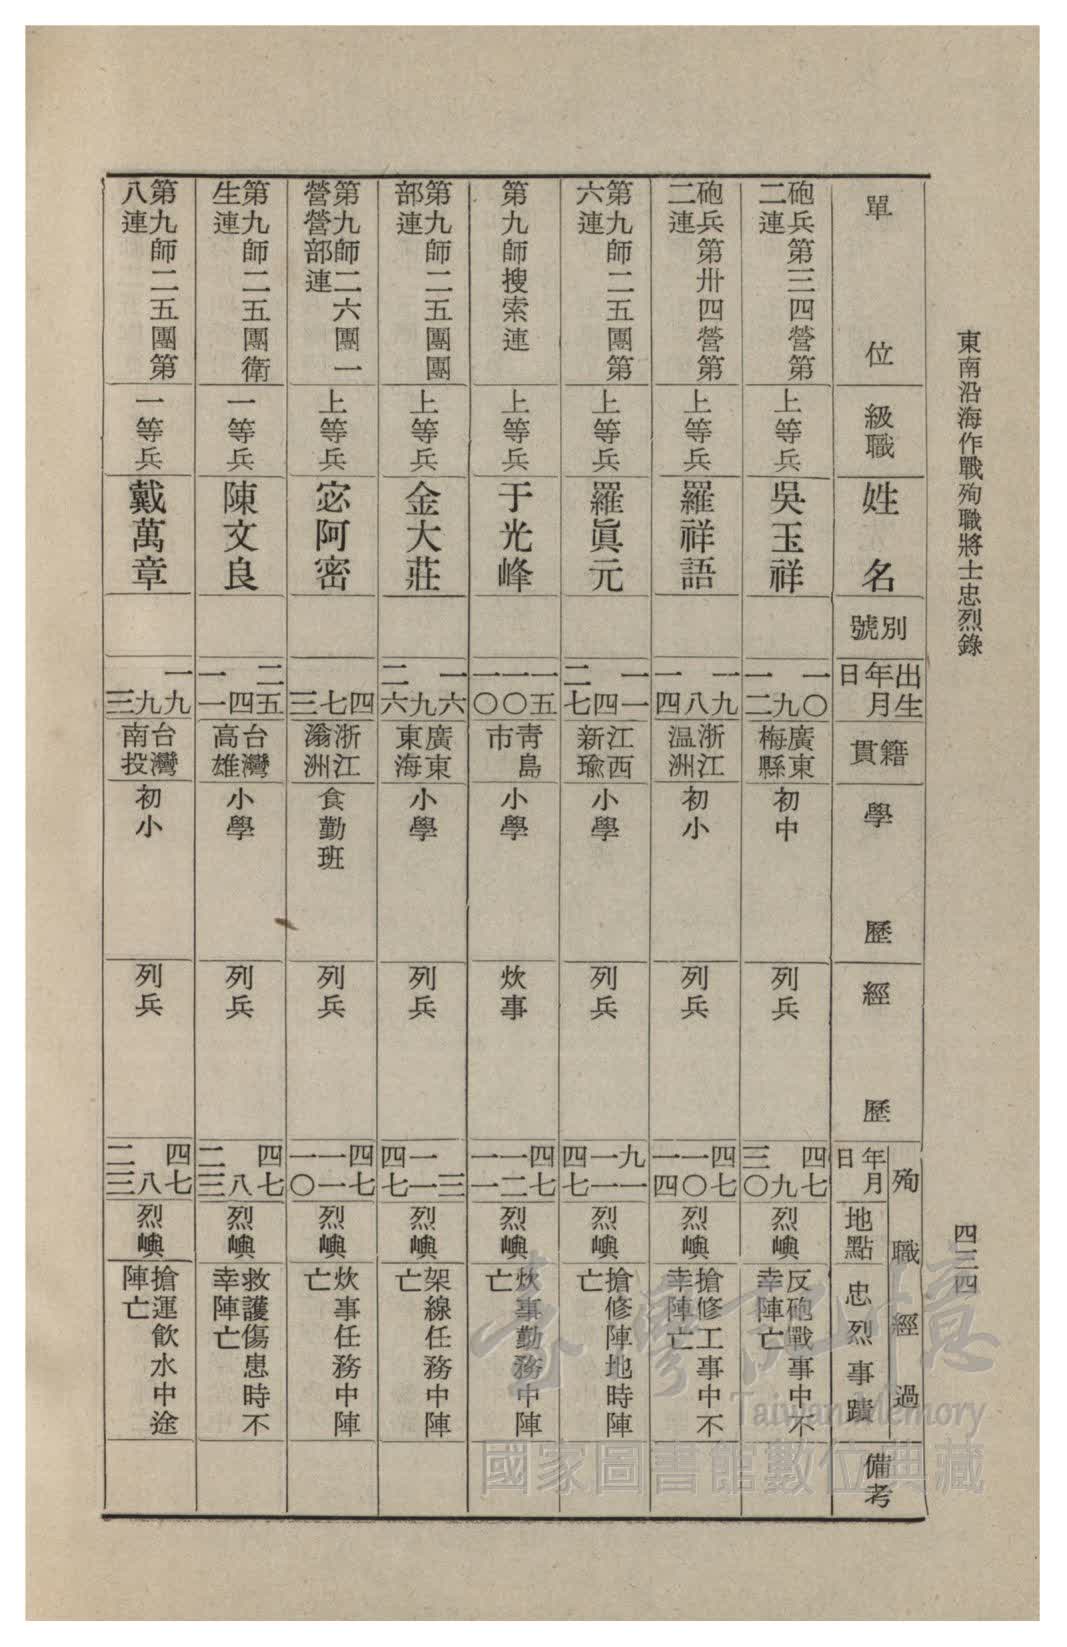 東南沿海作戰殉職將士忠烈錄
四三四
單位
級職
姓名
別號
出生
年月
日
籍貫
學歷
經歷
殉職經過
年月
日
地點
忠烈事蹟
備考
砲兵第三四營第
二連
上等兵
吳玉祥
一〇
九
一二
廣東
梅縣
初中
列兵
四七
九
三〇
烈嶼
反砲戰事中不
幸陣亡
砲兵第卅四營第
二連
上等兵
羅祥語
一九
八
一四
浙江
温洲
初小
列兵
四七
一〇
一四
烈嶼
搶修工事中不
幸陣亡
第九師二五團第
六連
上等兵
羅眞元
一一
四
二七
江西
新瑜
小學
列兵
九一
一一
四七
烈嶼
搶修陣地時陣
亡
第九師搜索連
上等兵
于光峰
一五
一〇
一〇
青島
市
小學
炊事
四七
一二
一一
烈嶼
炊事勤務中陣
亡
第九師二五團團
部連
上等兵
金大莊
一六
九
二六
廣東
東海
小學
列兵
三
一一
四七
烈嶼
架線任務中陣
亡
第九師二六團一
營營部連
上等兵
宓阿密
四
七
三
浙江
滃洲
食勤班
列兵
四七
一一
一〇
烈嶼
炊事任務中陣
亡
第九師二五團衛
生連
一等兵
陳文良
二五
四
一一
台灣
高雄
小學
列兵
四七
八
二三
烈嶼
救護傷患時不
幸陣亡
第九師二五團第
八連
一等兵
戴萬章
一九
九
三
台灣
南投
初小
列兵
四七
八
二三
烈嶼
搶運飲水中途
陣亡
臺灣記憶
Taiwan Memory
國家圖書館數位典藏